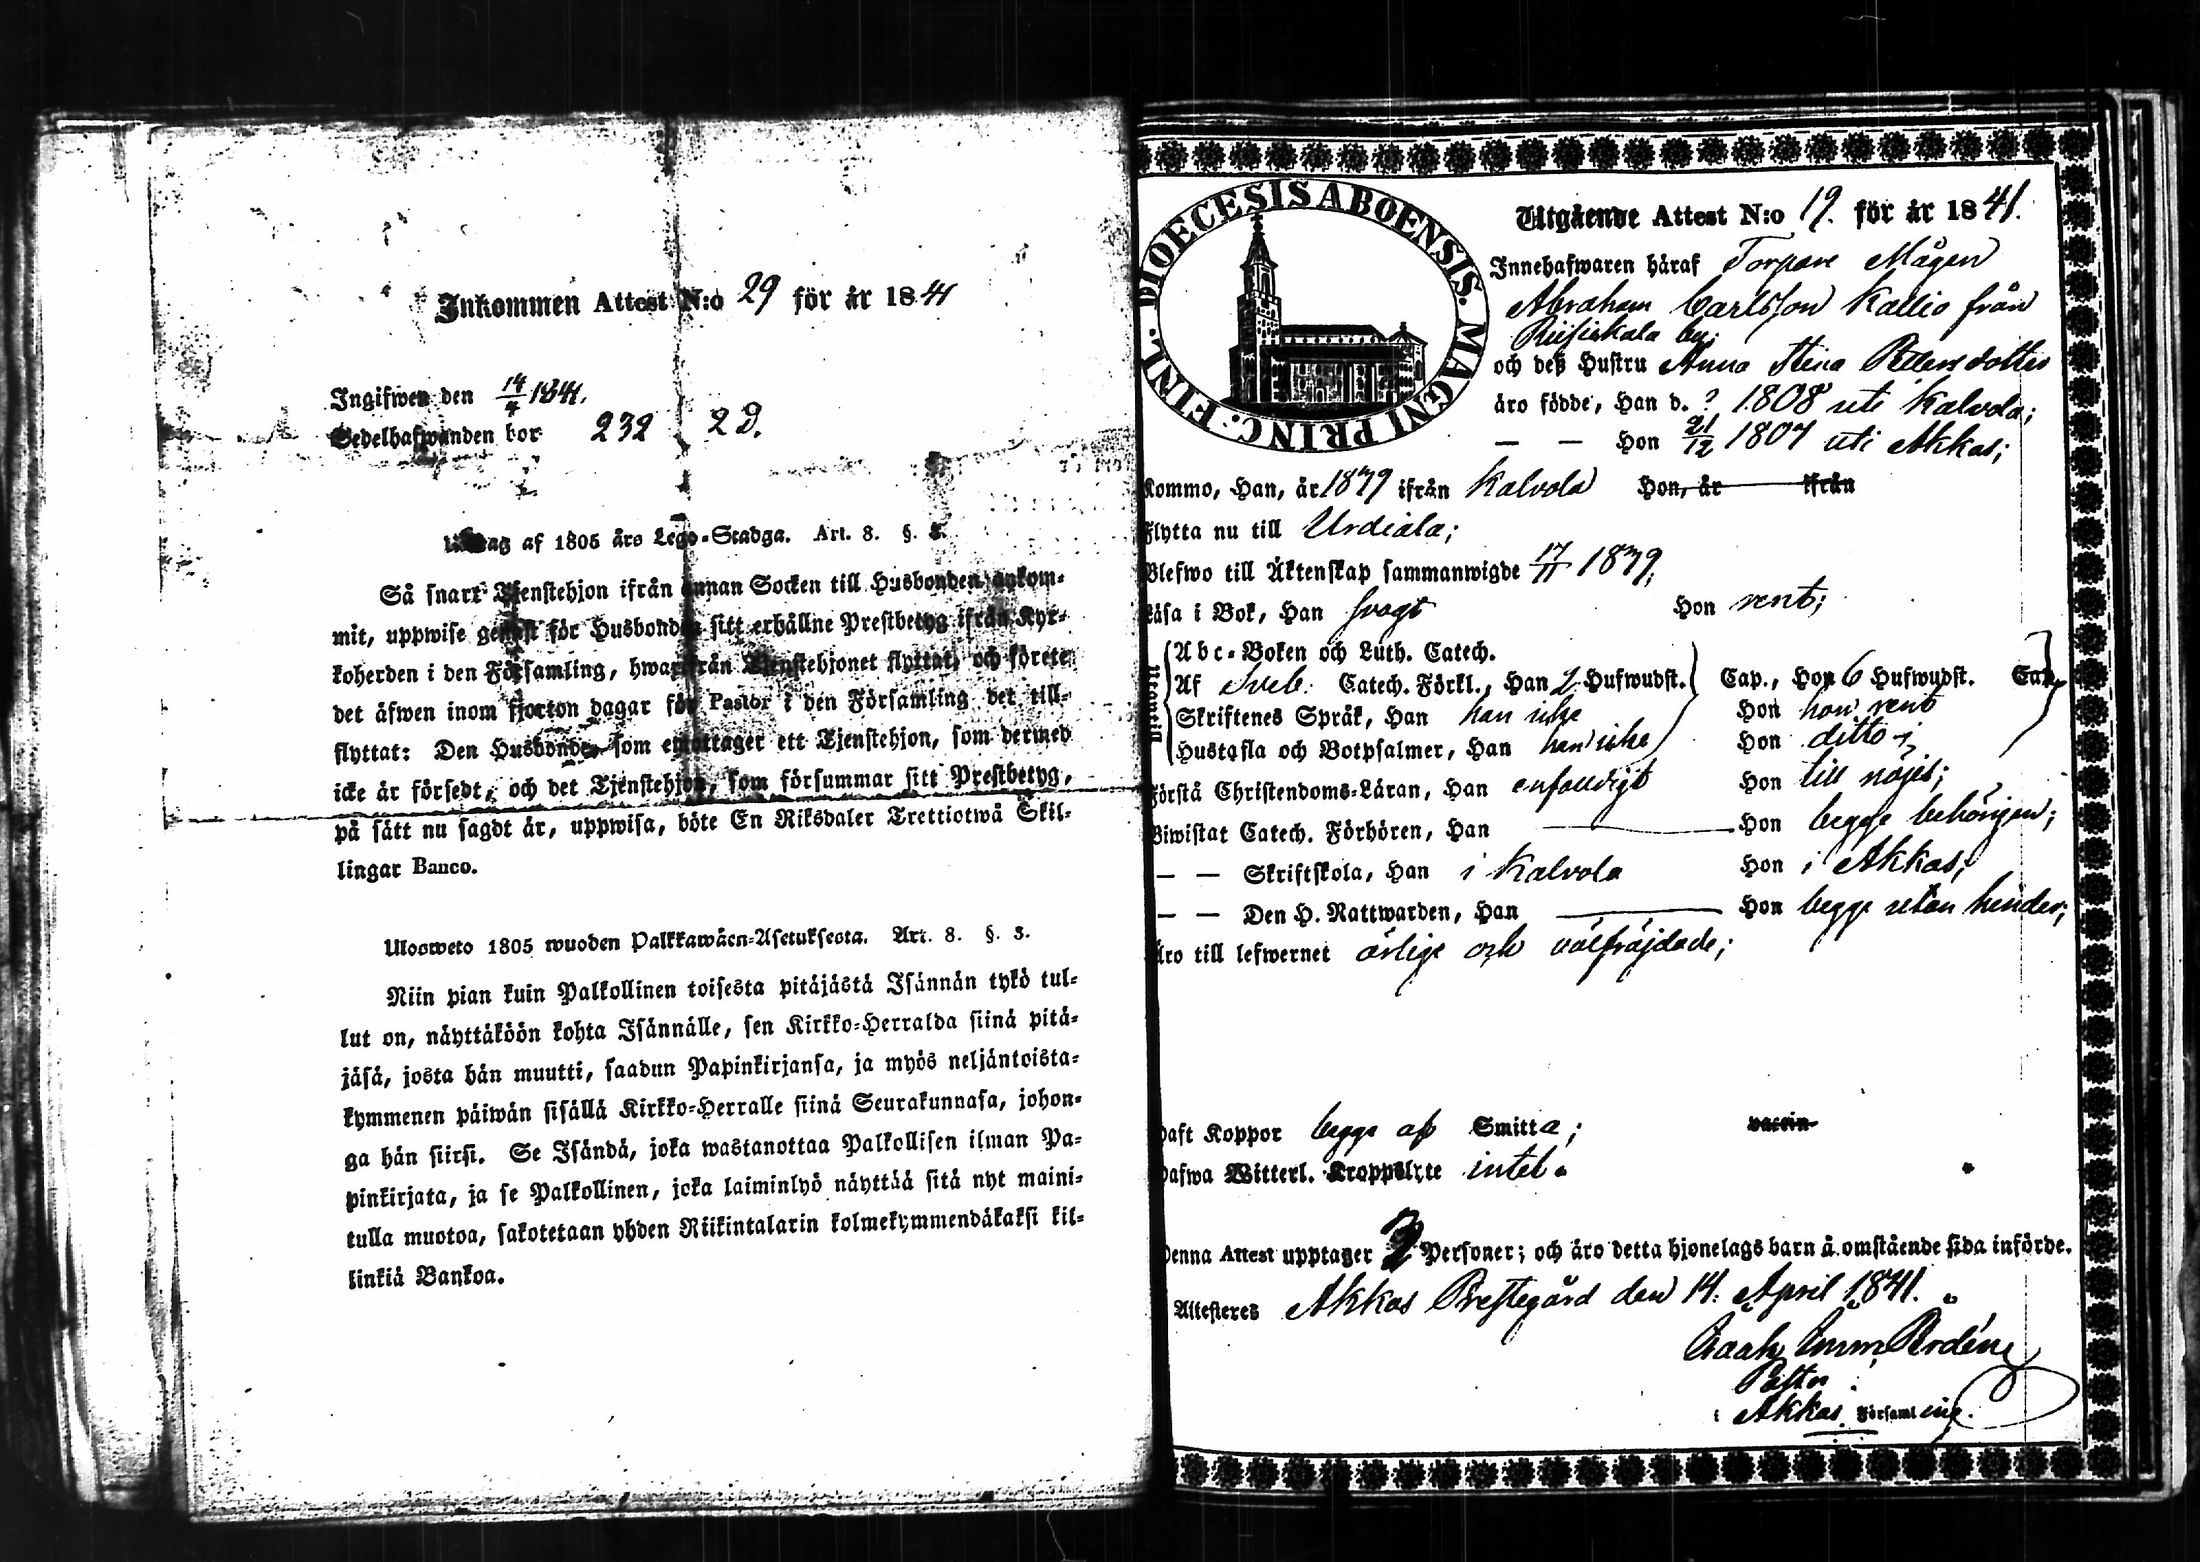 Inkommen Attest N:o 29 för år 1841
Ingifwen den 14/4 1841.
Sedelhafwanden bor 232 2 D.
af 1805 års Lego-Stadga. Art. 8. §. 3.
Så snart Tjenstehjon ifrån annan Socken till Husbonden ankom-
mit, uppwise genast för Husbonden sitt erhållne Prestbetyg ifrån Kyr-
koherden i den Församling, hwarifrån Tjenstehjonet flyttat, och förete
det äfwen inom fjorton dagar för Pastor i den Församling det till-
flyttat: Den Husbonde, som emottager ett Tjenstehjon, som dermed
icke är försedt, och det Tjenstehjon, som försummar sitt Prestbetyg,
på sätt nu sagdt är, uppwisa, böte En Riksdaler Trettiotwå Skil-
lingar Banco.
Ulosweto 1805 wuoden Palkkawäen-Asetuksesta. Art. 8. §. 3.
Niin pian kuin Palkollinen toisesta pitäjästä Isännän tykö tul-
lut on, näyttäköön kohta Isännälle, sen Kirkko-Herralda siinä pitä-
jäsä, josta hän muutti, saadun Papinkirjansa, ja myös neljäntoista-
kymmenen päiwän sisällä Kirkko-Herralle siinä Seurakunnasa, johon-
ga hän siirsi. Se Isändä, joka wastanottaa Palkollisen ilman Pa-
pinkirjata, ja se Palkollinen, joka laiminlyö näyttää sitä nyt maini-
tulla muotoa, sakotetaan yhden Riikintalarin kolmekymmendäkaksi kil-
linkiä Bankoa.
DIOECESIS ABOENSIS. MAGNI PRINC: FINL.
Utgående Attest N:o 19. för år 1841.
Innehafwaren häraf Torpare Mågen
Abraham Carlsson Kallio från
Riisikkala by;
och deß Hustru Anna Stina Petersdotter
äro födde, Han d. ? 1808 uti Kalvola;
— — Hon 21/12 1807 uti Akkas;
Kommo, Han, år 1839 ifrån Kalvola Hon, år ifrån
Flytta nu till Urdiala;
Blefwo till Äktenskap sammanwigde 17/11 1839;
Läsa i Bok, Han svagt Hon rent;
Abc-Boken och Luth. Catech.
Af Sveb. Catech. Förkl., Han 2 Hufwudst. Cap., Hon 6 Hufwudst. Cap.
Skriftenes Språk, Han kan icke Hon kan rent
Hustafla och Botpsalmer, Han kan icke Hon ditto;
Förstå Christendoms-Läran, Han enfaldigt Hon till nöjes;
Biwistat Catech. Förhören, Han — Hon begge behörigen;
— — Skriftskola, Han i Kalvola Hon i Akkas;
— — Den H. Nattwarden, Han — Hon begge utan hinder;
Äro till lefwernet ärlige och välfräjdade;
Haft Koppor begge af Smitta; vaccin
Hafwa Witterl. Kroppslyte intet.
Denna Attest upptager 2 Personer; och äro detta hjonelags barn å omstående sida införde.
Attesteres Akkas Prestegård den 14. April 1841.
Pastor
i Akkas Församling.